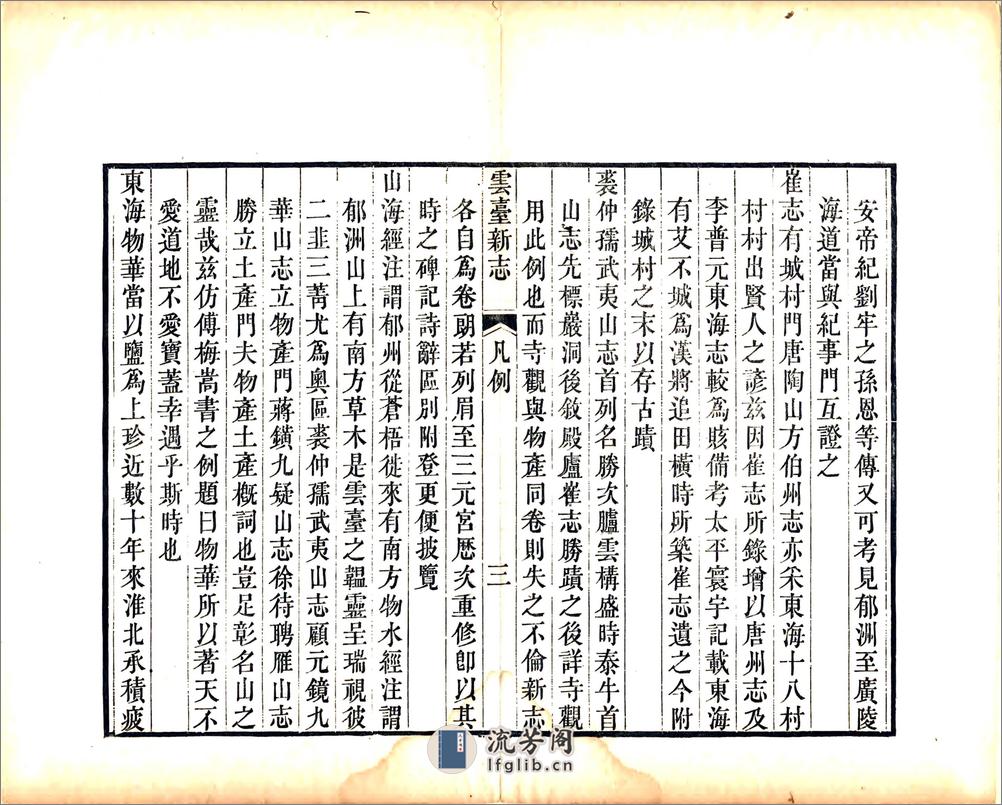 安帝紀劉牢之孫恩等傳又可考見郁洲至廣陵
海道當與紀事門互證之
崔志有城村門唐陶山方伯州志亦采東海十八村
村村出賢人之諺兹因崔志所錄增以唐州志及
李普元東海志較爲賅備考太平寰宇記載東海
有艾不城爲漢將追田橫時所築崔志遺之今附
錄城村之末以存古蹟
裘仲孺武夷山志首列名勝次臚雲構盛時泰牛首
山志先標巖洞後敘殿廬崔志勝蹟之後詳寺觀
用此例也而寺觀與物產同卷則失之不倫新志
雲臺新志
凡例
三
各自爲卷朗若列眉至三元宮歷次重修卽以其
時之碑記詩辭區別附登更便披覽
山海經注謂郁州從蒼梧徙來有南方物水經注謂
郁洲山上有南方草木是雲臺之韞靈呈瑞視彼
二韭三菁尤爲奧區裘仲孺武夷山志顧元鏡九
華山志立物產門蔣鐄九疑山志徐待聘雁山志
勝立土產門夫物產土產槪詞也豈足彰名山之
靈哉兹仿傅梅嵩書之例題曰物華所以著天不
愛道地不愛寶蓋幸遇乎斯時也
東海物華當以鹽爲上珍近數十年來淮北承積疲
流芳阁
lfglib.cn